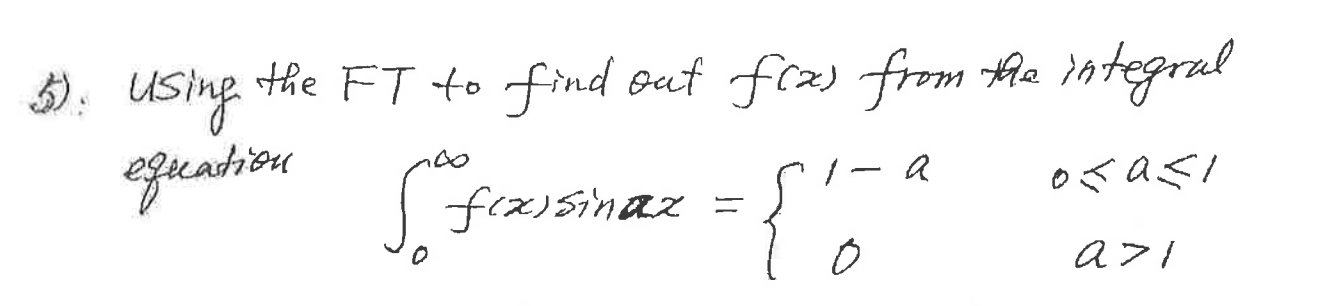 5). Using the FT to find out f(x) from the integral
equation
∫₀^∞ f(x) sin ax = { 1 - a   0 ≤ a ≤ 1
0   a > 1